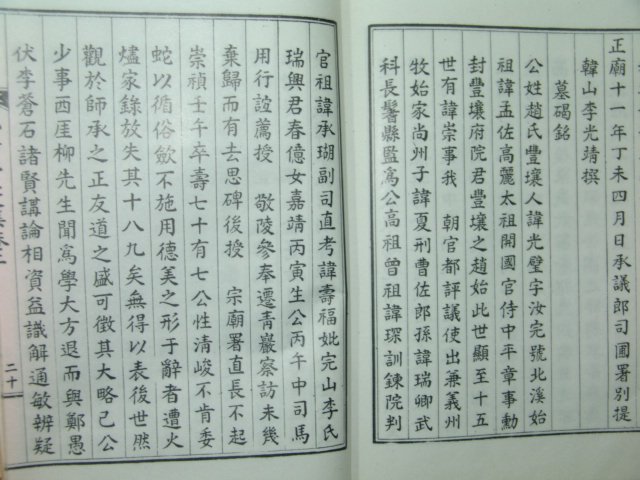 正廟十一年丁未四月日承議郎司圃署別提
韓山李光靖撰
墓碣銘
公姓趙氏豐壤人諱光璧字汝完號北溪始
祖諱孟佐高麗太祖開國官侍中平章事勳
封豐壤府院君豐壤之趙始此世顯至十五
世有諱崇事我 朝官都評議使出兼義州
牧始家尚州子諱夏刑曹佐郎孫諱瑞卿武
科長鬐縣監寫公高祖曾祖諱琛訓鍊院判
官祖諱承瑚副司直考諱壽福妣完山李氏
瑞興君春億女嘉靖丙寅生公丙午中司馬
用行誼薦授 敬陵參奉遷青巖察訪未幾
棄歸而有去思碑後授 宗廟署直長不起
崇禎壬午卒壽七十有七公性清峻不肯委
蛇以循俗歛不施用德美之形于辭者遭火
燼家錄放失其十八九矣無得以表後世然
觀於師承之正友道之盛可徵其大略已公
少事西厓柳先生聞爲學大方退而與鄭愚
伏李蒼石諸賢講論相資益識解通敏辨疑
二十